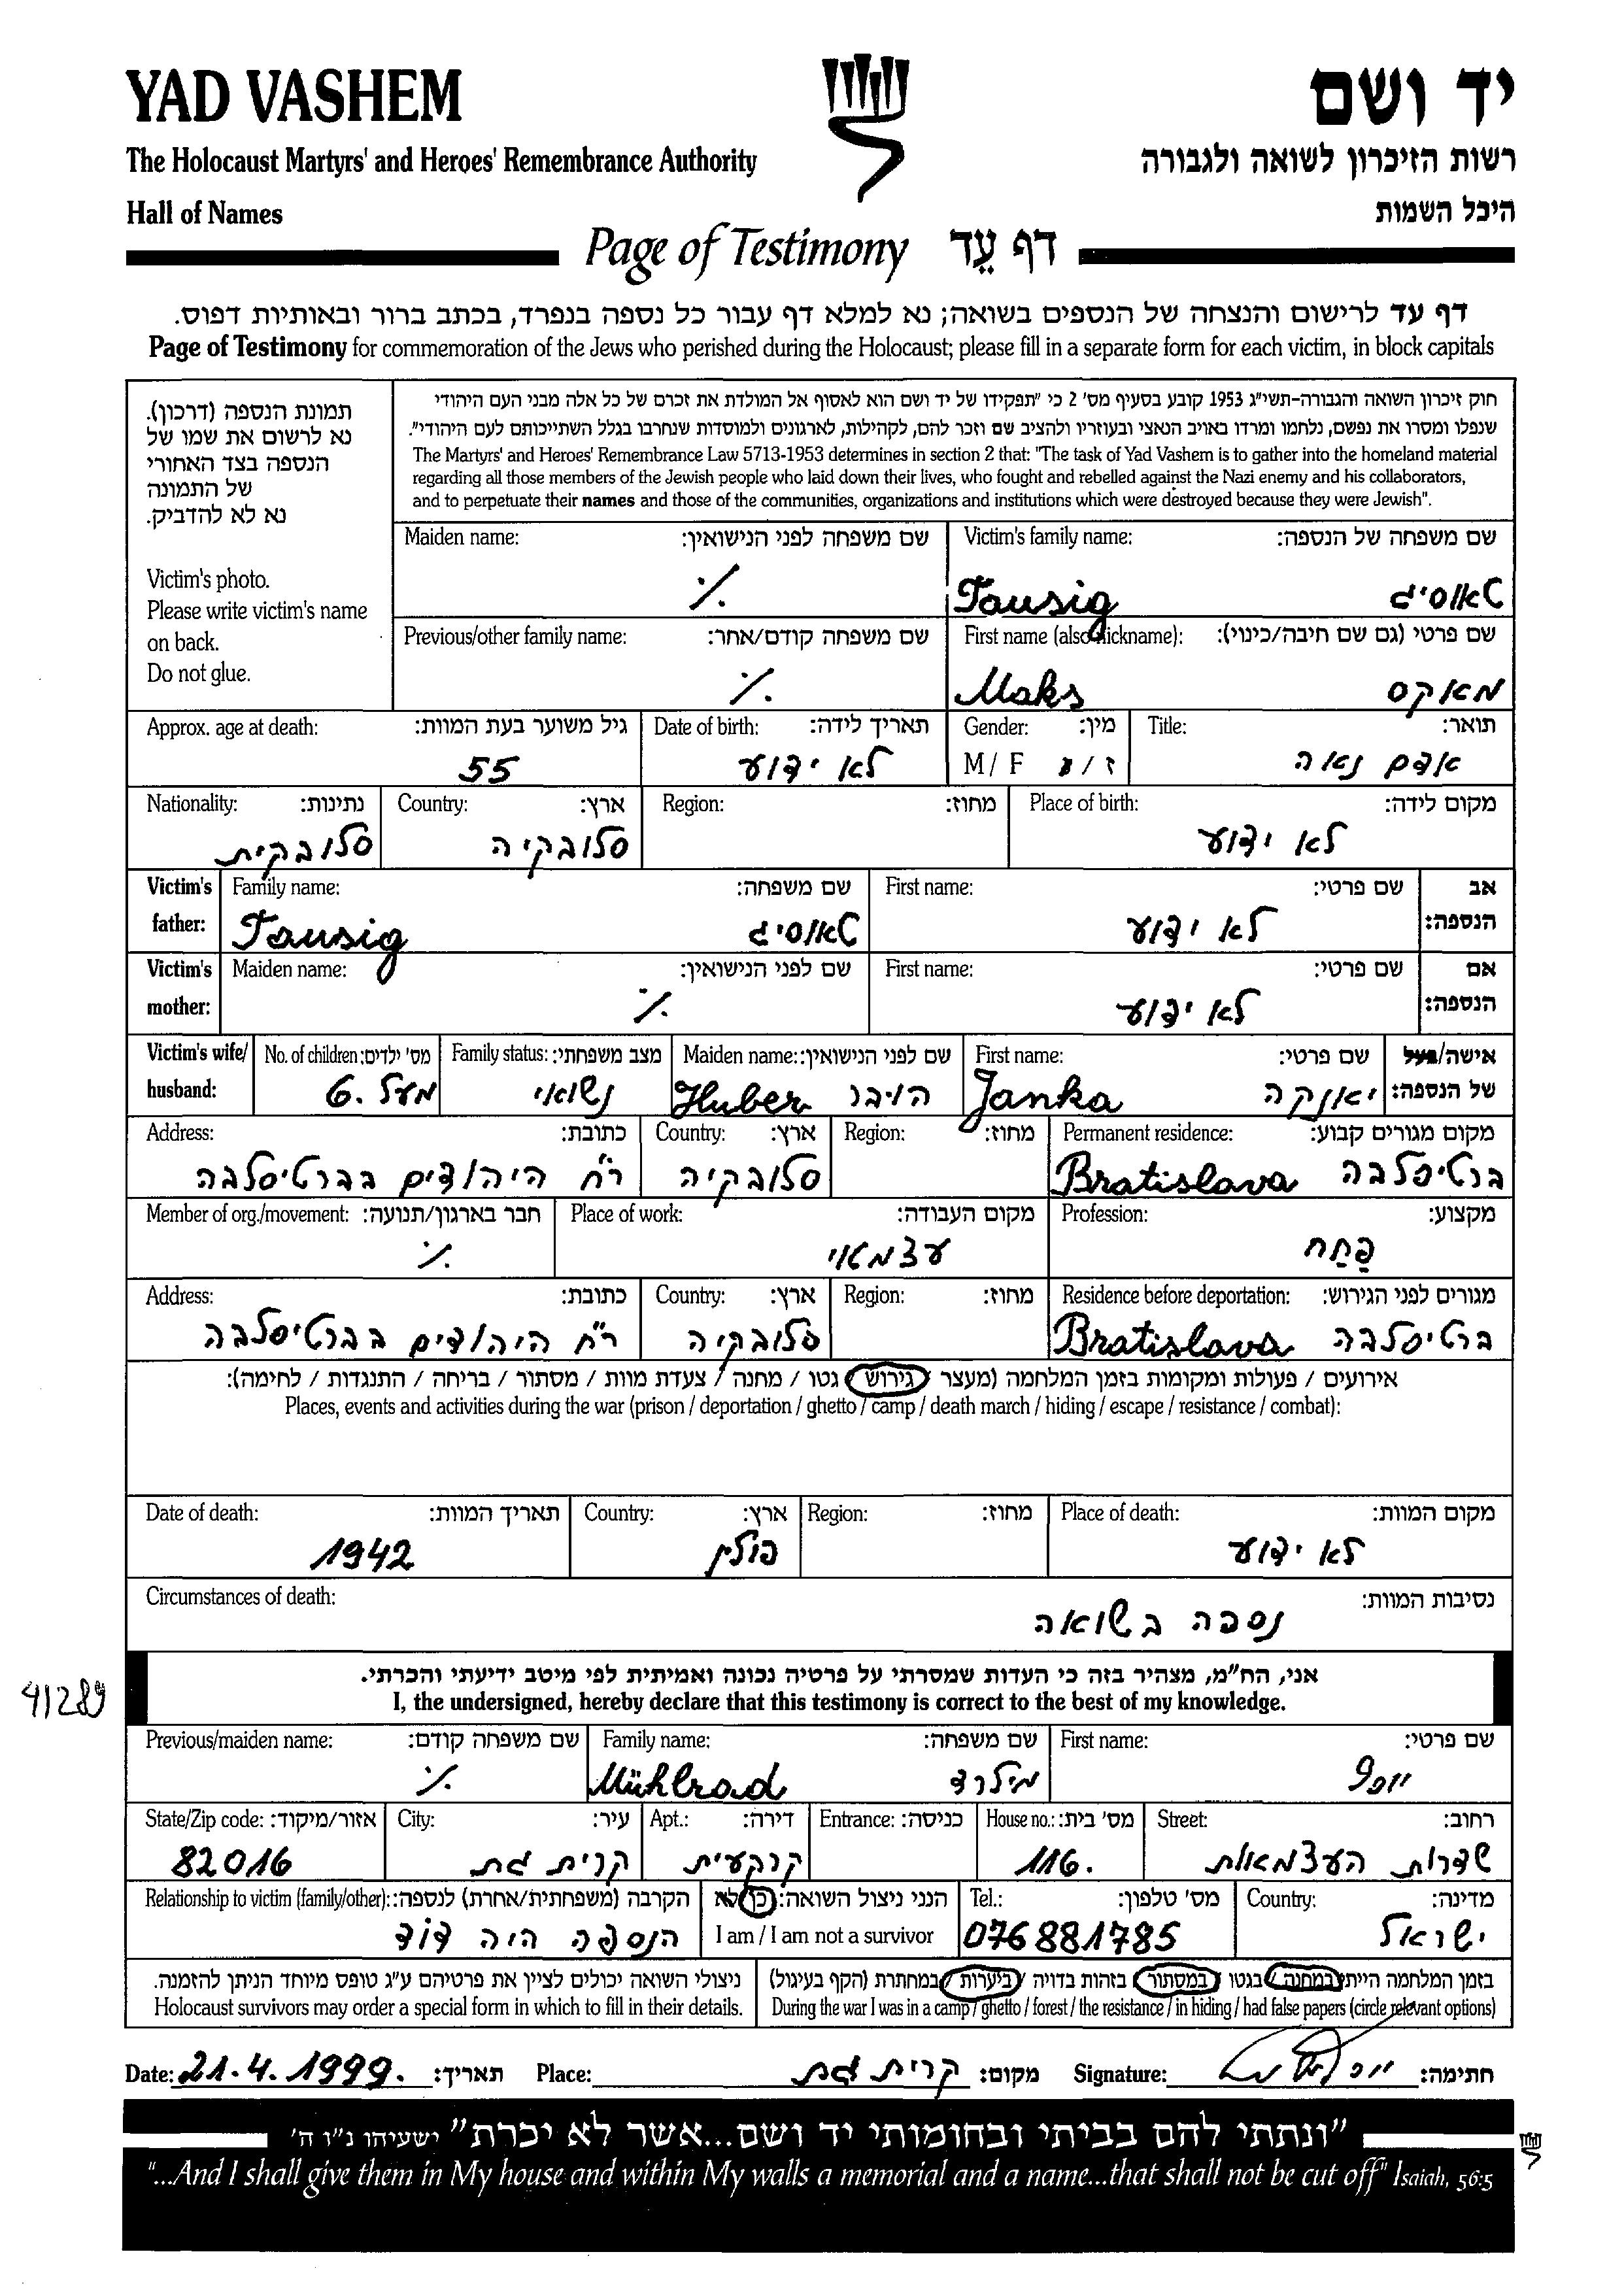 YAD VASHEM
יד ושם
The Holocaust Martyrs' and Heroes' Remembrance Authority
רשות הזיכרון לשואה ולגבורה
Hall of Names
היכל השמות
Page of Testimony דף עֵד
דף עד לרישום והנצחה של הנספים בשואה; נא למלא דף עבור כל נספה בנפרד, בכתב ברור ובאותיות דפוס.
Page of Testimony for commemoration of the Jews who perished during the Holocaust; please fill in a separate form for each victim, in block capitals
תמונת הנספה (דרכון).
נא לרשום את שמו של
הנספה בצד האחורי
של התמונה
נא לא להדביק.
Victim's photo.
Please write victim's name
on back.
Do not glue.
חוק זיכרון השואה והגבורה-תשי"ג 1953 קובע בסעיף מס' 2 כי "תפקידו של יד ושם הוא לאסוף אל המולדת את זכרם של כל אלה מבני העם היהודי
שנפלו ומסרו את נפשם, נלחמו ומרדו באויב הנאצי ובעוזריו ולהציב שם וזכר להם, לקהילות, לארגונים ולמוסדות שנחרבו בגלל השתייכותם לעם היהודי".
The Martyrs' and Heroes' Remembrance Law 5713-1953 determines in section 2 that: "The task of Yad Vashem is to gather into the homeland material
regarding all those members of the Jewish people who laid down their lives, who fought and rebelled against the Nazi enemy and his collaborators,
and to perpetuate their names and those of the communities, organizations and institutions which were destroyed because they were Jewish".
Maiden name: שם משפחה לפני הנישואין: Victim's family name: שם משפחה של הנספה:
٪ Tausig טאוסיג
Previous/other family name: שם משפחה קודם/אחר: First name (also nickname): שם פרטי (גם שם חיבה/כינוי):
٪ Maks מאקס
Approx. age at death: גיל משוער בעת המוות: Date of birth: תאריך לידה: Gender: מין: Title: תואר:
55 לא ידוע M / F ז / נ אדם נאה
Nationality: נתינות: Country: ארץ: Region: מחוז: Place of birth: מקום לידה:
סלובקית סלובקיה לא ידוע
Victim's father: Family name: שם משפחה: First name: שם פרטי: אב הנספה:
Tausig טאוסיג לא ידוע
Victim's mother: Maiden name: שם לפני הנישואין: First name: שם פרטי: אם הנספה:
٪ לא ידוע
Victim's wife/ husband: No. of children: מס' ילדים: Family status: מצב משפחתי: Maiden name: שם לפני הנישואין: First name: שם פרטי: אישה/בעל של הנספה:
מעל 6. נשואי Huber הובר Janka יאנקה
Address: כתובת: Country: ארץ: Region: מחוז: Permanent residence: מקום מגורים קבוע:
רח' היהודים בברטיסלבה סלובקיה Bratislava ברטיסלבה
Member of org./movement: חבר בארגון/תנועה: Place of work: מקום העבודה: Profession: מקצוע:
٪ עצמאי פַּחַח
Address: כתובת: Country: ארץ: Region: מחוז: Residence before deportation: מגורים לפני הגירוש:
רח' היהודים בברטיסלבה סלובקיה Bratislava ברטיסלבה
אירועים / פעולות ומקומות בזמן המלחמה (מעצר / גירוש / גטו / מחנה / צעדת מוות / מסתור / בריחה / התנגדות / לחימה):
Places, events and activities during the war (prison / deportation / ghetto / camp / death march / hiding / escape / resistance / combat):
Date of death: תאריך המוות: Country: ארץ: Region: מחוז: Place of death: מקום המוות:
1942 פולין לא ידוע
Circumstances of death: נסיבות המוות:
נספה בשואה
אני, הח"מ, מצהיר בזה כי העדות שמסרתי על פרטיה נכונה ואמיתית לפי מיטב ידיעתי והכרתי.
I, the undersigned, hereby declare that this testimony is correct to the best of my knowledge.
41289
Previous/maiden name: שם משפחה קודם: Family name: שם משפחה: First name: שם פרטי:
٪ Mühlrad מילרד יוסף
State/Zip code: אזור/מיקוד: City: עיר: Apt.: דירה: Entrance: כניסה: House no.: מס' בית: Street: רחוב:
82016 קרית גת קרקעית 116. שדרות העצמאות
Relationship to victim (family/other): הקרבה (משפחתית/אחרת) לנספה: הנני ניצול השואה: כן / לא Tel.: מס' טלפון: Country: מדינה:
הנספה היה דוד I am / I am not a survivor 076881785 ישראל
ניצולי השואה יכולים לציין את פרטיהם ע"ג טופס מיוחד הניתן להזמנה. בזמן המלחמה הייתי במחנה / בגטו / במסתור / בזהות בדויה / ביערות / במחתרת (הקף בעיגול)
Holocaust survivors may order a special form in which to fill in their details. During the war I was in a camp / ghetto / forest / the resistance / in hiding / had false papers (circle relevant options)
Date: 21.4.1999. תאריך: Place: קרית גת מקום: Signature: חתימה:
"ונתתי להם בביתי ובחומותי יד ושם...אשר לא יכרת" ישעיהו נ"ו ה'
"...And I shall give them in My house and within My walls a memorial and a name...that shall not be cut off" Isaiah, 56:5